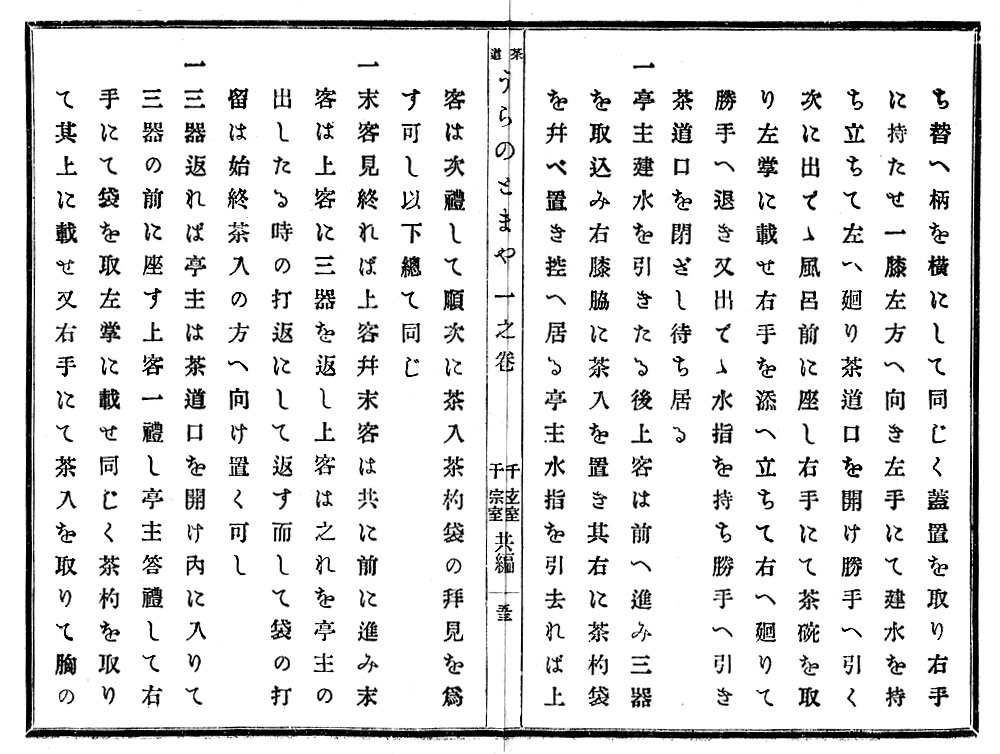 ち替へ柄を橫にして同じく蓋置を取り右手
に持たせ一膝左方へ向き左手にて建水を持
ち立ちて左へ廻り茶道口を開け勝手へ引く
次に出でゝ風呂前に座し右手にて茶碗を取
り左掌に載せ右手を添へ立ちて右へ廻りて
勝手へ退き又出でゝ水指を持ち勝手へ引き
茶道口を閉ざし待ち居る
一亭主建水を引きたる後上客は前へ進み三器
を取込み右膝脇に茶入を置き其右に茶杓袋
を幷べ置き控へ居る亭主水指を引去れば上
茶道うらのとまや 一之卷 千玄室 千宗室 共編 五
客は次禮して順次に茶入茶杓袋の拜見を爲
す可し以下總て同じ
一末客見終れば上客幷末客は共に前に進み末
客は上客に三器を返し上客は之れを亭主の
出したる時の打返にして返す而して袋の打
留は始終茶入の方へ向け置く可し
一三器返れば亭主は茶道口を開け內に入りて
三器の前に座す上客一禮し亭主答禮して右
手にて袋を取左掌に載せ同じく茶杓を取り
て其上に載せ又右手にて茶入を取りて胸の